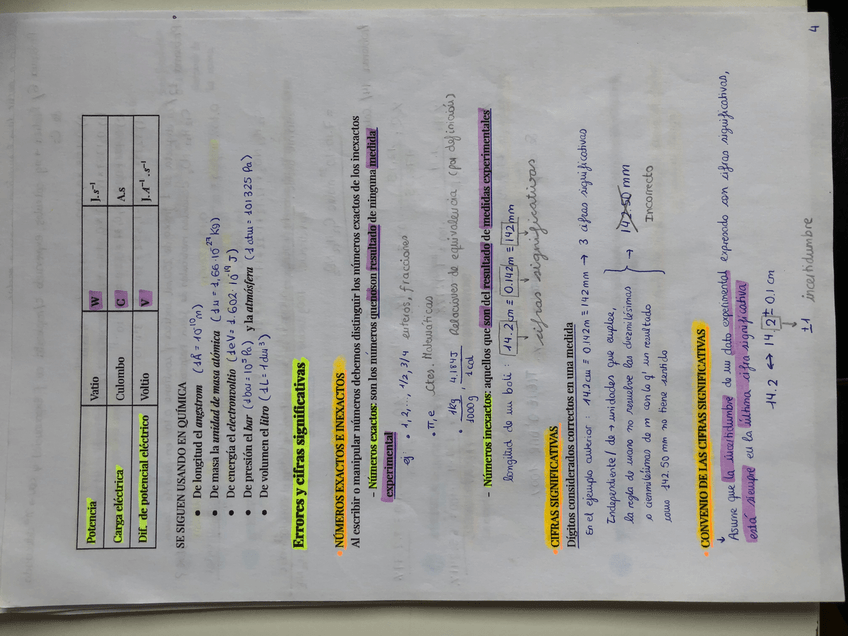 Potencia Vatio W J.s⁻¹
Carga eléctrica Culombo C A.s
Dif. de potencial eléctrico Voltio V J.A⁻¹.s⁻¹
SE SIGUEN USANDO EN QUÍMICA
• De longitud el angstrom (1Å = 10⁻¹⁰ m)
• De masa la unidad de masa atómica (1u = 1,66·10⁻²⁷ Kg)
• De energía el electronvoltio (1eV = 1.602·10⁻¹⁹ J)
• De presión el bar (1bar = 10⁵ Pa) y la atmósfera (1atm = 101325 Pa)
• De volumen el litro (1L = 1dm³)
Errores y cifras significativas
• NÚMEROS EXACTOS E INEXACTOS
Al escribir o manipular números debemos distinguir los números exactos de los inexactos
- Números exactos: son los números que no son resultado de ninguna medida
experimental
ej: • 1,2,..., 1/2, 3/4 enteros, fracciones
• π, e Ctes. Matemáticas
• 1Kg/1000g, 4.184J/1cal Relaciones de equivalencia (por definición)
- Números inexactos: aquellos que son del resultado de medidas experimentales
longitud de un boli: 14.2cm = 0.142m = 142mm
cifras significativas
• CIFRAS SIGNIFICATIVAS
Dígitos considerados correctos en una medida
En el ejemplo anterior: 14.2cm = 0.142m = 142mm → 3 cifras significativas
Independiente/ de → unidades que emplee,
la regla de mano no resuelve las diezmilésimas
o cienmilésimas de m con lo q' un resultado
como 142.50 mm no tiene sentido
→ 142.50 mm
Incorrecto
• CONVENIO DE LAS CIFRAS SIGNIFICATIVAS
↓ Asume que la incertidumbre de un dato experimental expresado con cifras significativas,
está siempre en la última cifra significativa
14.2 ↔ 14.2 ± 0.1 cm
±1 incertidumbre
4